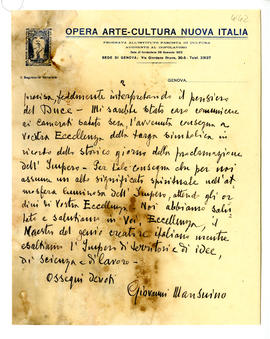 442
OPERA ARTE-CULTURA NUOVA ITALIA
SEDE DI GENOVA - Via Giordano Bruno, 30-5 - Telef.
Il Segretario Generale
GENOVA,
2
fedelmente interpretando il pensiero
del Duce - Mi sarebbe stato caro comunicare
ai camerati saluto sera l'avvenuta consegna in
Vostra Eccellenza della targa simbolica in
ricordo dello storico giorno della proclamazione
dell'Impero - Per tale consegna che per noi
assume un alto significato spirituale nell'at
mosfera luminosa dell'Impero, attendo gli or
dini di Vostra Eccellenza. Noi abbiamo salu
tato e salutiamo in Voi, Eccellenza, il
Maestro del genio creatore italiano mentre
esaltiamo l'Impero di territorio e di idee,
di scienza e di lavoro -
Ossequi devoti
Giovanni Mansuino